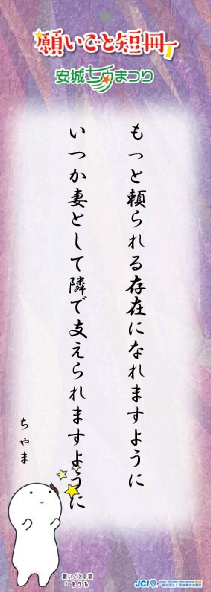 願いごと短冊
安城七夕まつり
もっと頼られる存在になれますように
いつか妻として隣で支えられますように
ちやま
JCI